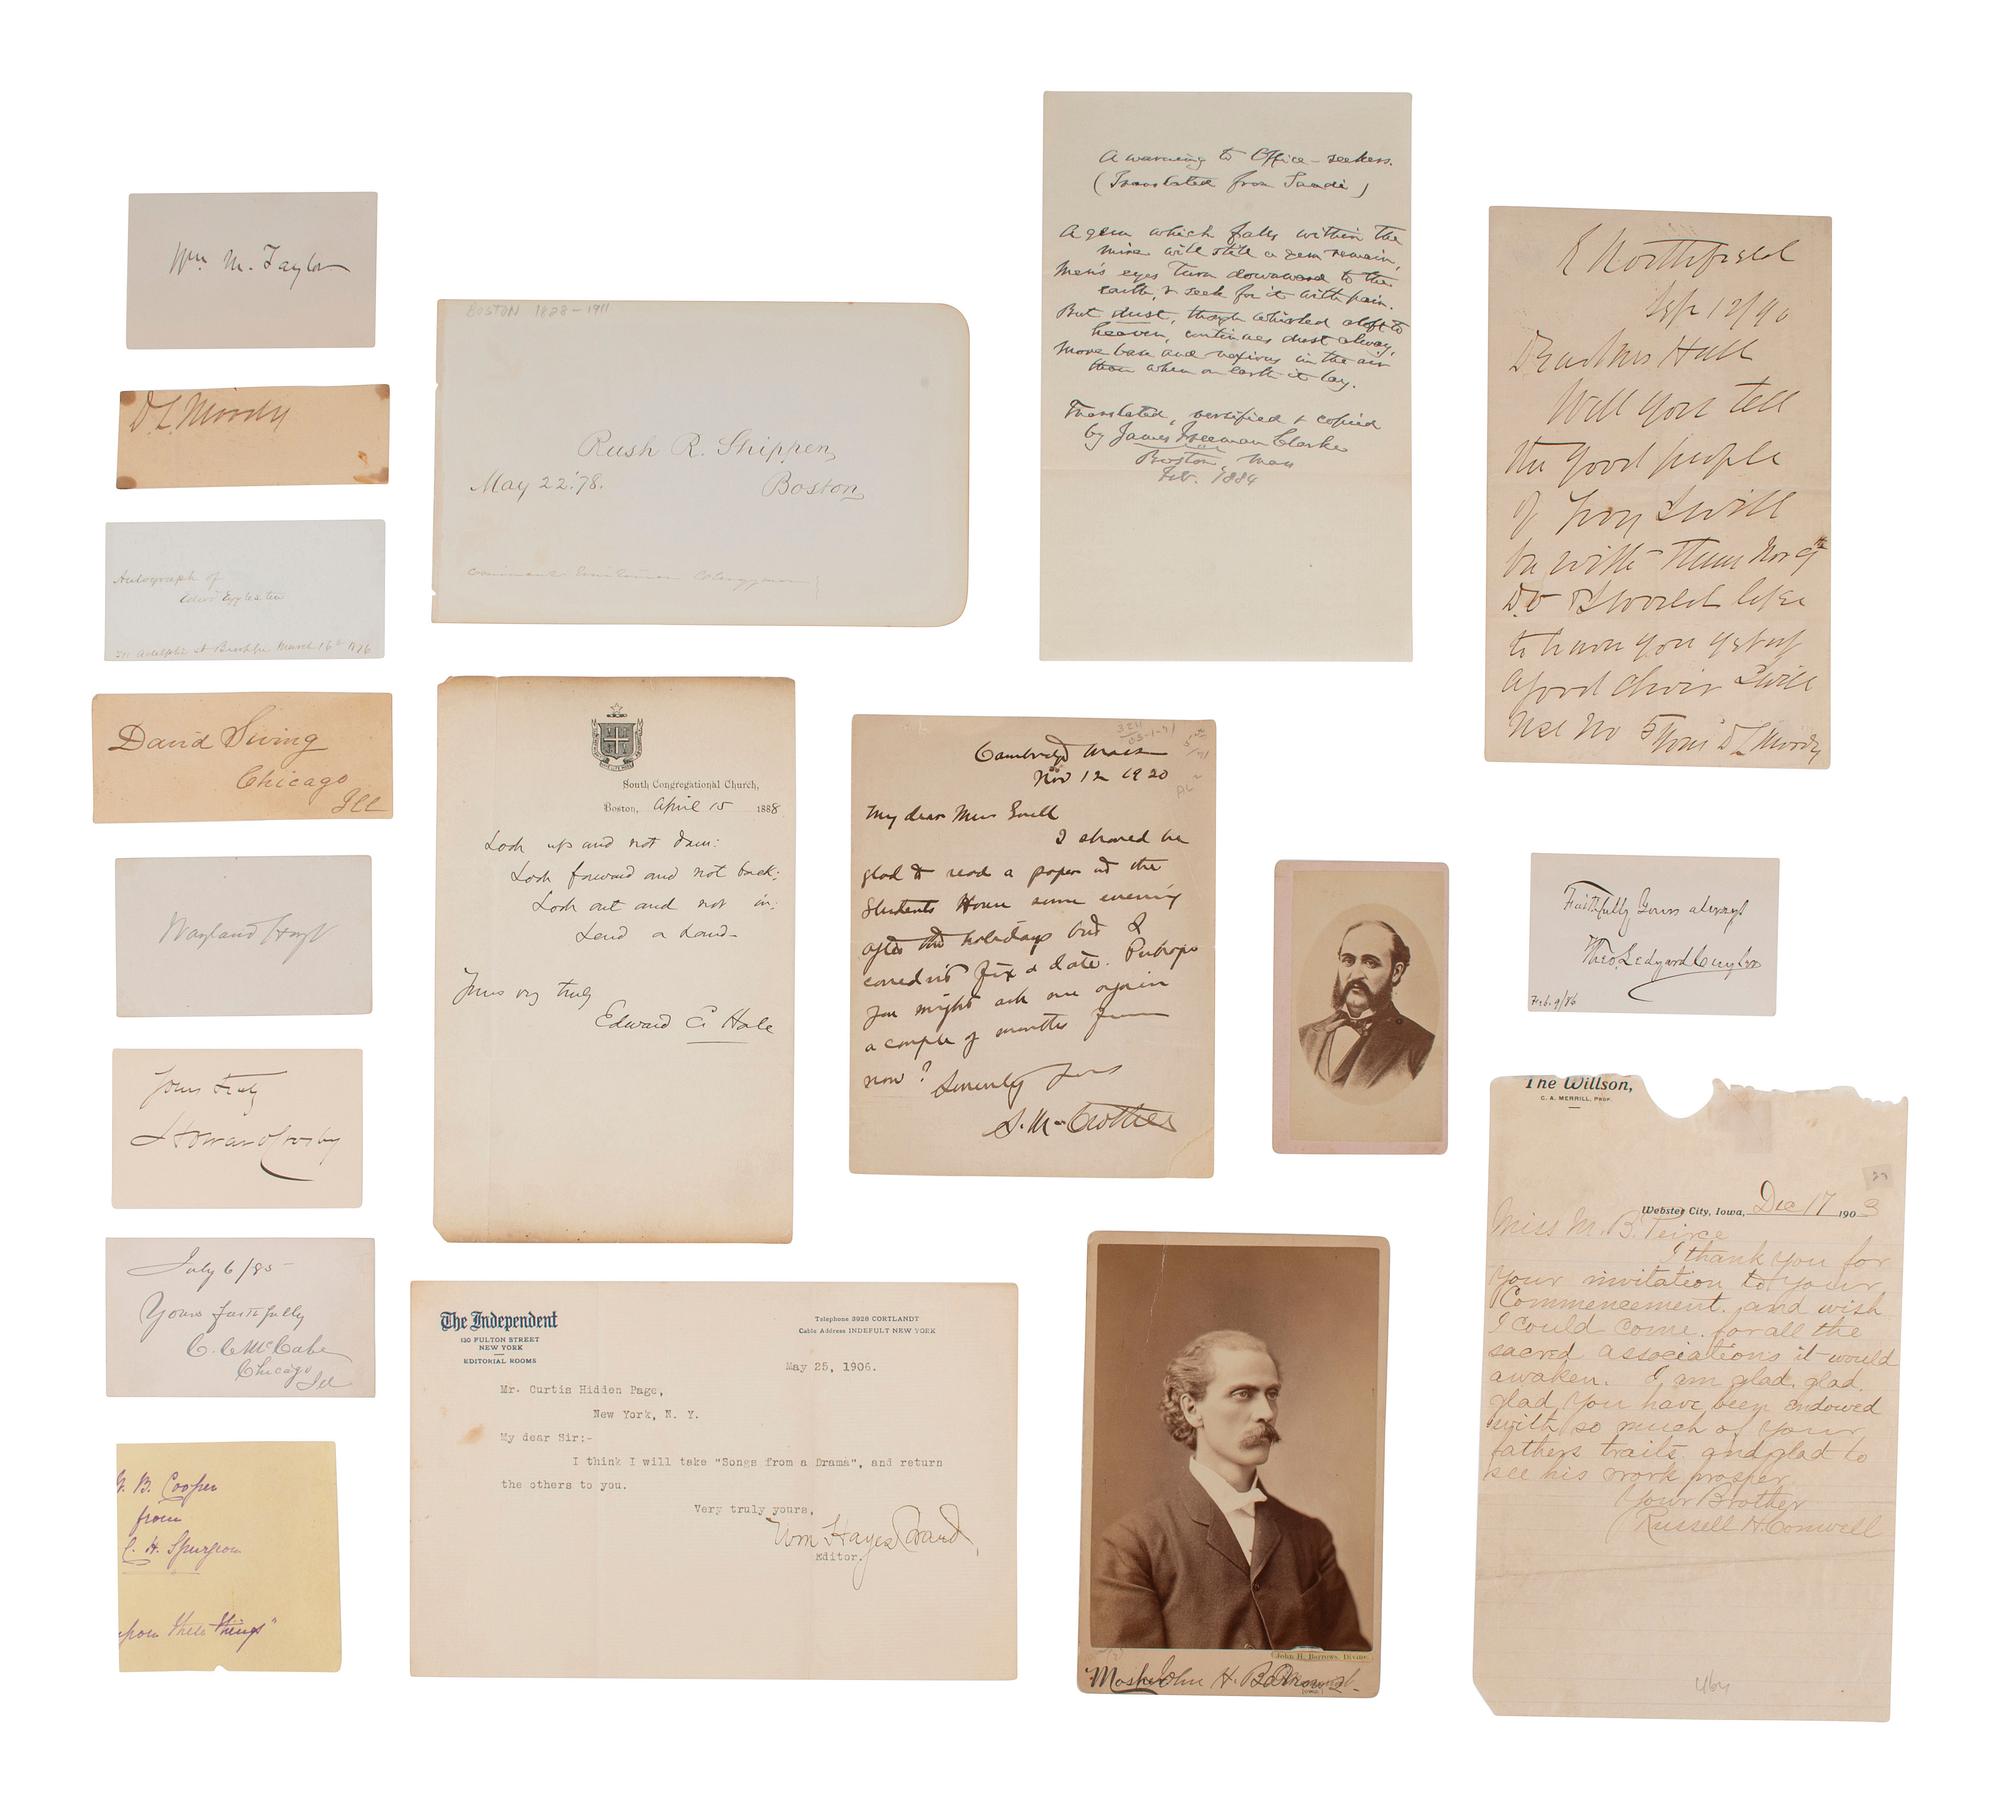 Wm. M. Taylor
D. L. Moody
Autograph of
Edwd Eggleston
Adelphi St Brooklyn March 16th 1876
David Swing
Chicago
Ill
Wayland Hoyt
Yours truly
Howard Crosby
July 6/85
Yours faithfully
C. C. McCabe
Chicago
Ill
B. Cooper
from
C. H. Spurgeon
upon these things"
BOSTON 1828-1911
Rush R. Shippen,
May 22.'78.
Boston
Unitarian Clergyman
South Congregational Church,
Boston, April 15 1888
Look up and not down:
Look forward and not back:
Look out and not in:
Lend a hand-
Yours very truly
Edward E Hale
The Independent
130 FULTON STREET
NEW YORK
EDITORIAL ROOMS
Telephone 3928 CORTLANDT
Cable Address INDEFULT NEW YORK
May 25, 1906.
Mr. Curtis Hidden Page,
New York, N. Y.
My dear Sir:-
I think I will take "Songs from a Drama", and return
the others to you.
Very truly yours,
Wm Hayes Ward,
Editor.
Cambridge Mass
Nov 12 1920
My dear Miss
I should be
glad to read a paper at the
Students House some evening
after the holidays but I
couldn't fix a date. Perhaps
you might ask me again
a couple of months from
now? Sincerely yours
S. M. Crothers
A warning to Office-seekers.
(Translated from Saadi)
A gem which falls within the
mire will still a gem remain,
Men's eyes turn downward to the
earth, & seek for it with pain.
But dust, though whirled aloft to
heaven, continues dust alway,
More base and noxious in the air
than when on earth it lay.
Translated, versified & copied
by James Freeman Clarke
Boston, Mass
Feb. 1884
John H. Barrows, Divine.
John H. Barrows
E Northfield
Sep 12/90
Dear Mrs Hall
Will you tell
the good people
of Troy I will
be with them Nov 9th
D.V I would like
to have you get up
a good choir I will
use No 5 Yours D L Moody
Faithfully Yours always
Theo. Ledyard Cuyler
Feb. 9/86
The Willson,
C. A. MERRILL, PROP.
27
Webster City, Iowa, Dec 17 1903
Miss M. B. Peirce
I thank you for
your invitation to your
Commencement. and wish
I could come. for all the
sacred associations it would
awaken. I am glad, glad,
glad, you have been endowed
with so much of your
fathers traits. and glad to
see his work prosper.
Your Brother
Russell H. Conwell